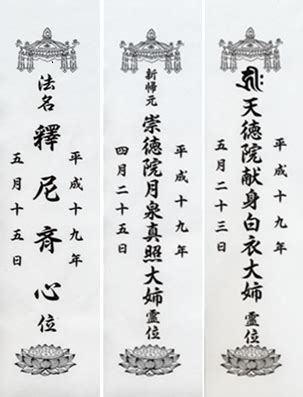 平成十九年
天徳院献身白衣大姉靈位
五月二十三日
平成十九年
新帰元
崇徳院月泉真照大姉靈位
四月二十五日
平成十九年
法名
釋尼斉心位
五月十五日